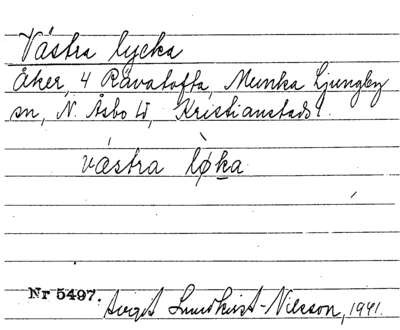 Västra lycka
Åker, 4 Råvatofta, Munka Ljungby
sn, N. Åsbo hd, Kristianstads l.
västra lø̀ka
Nr 5497. Birgit Lundkvist-Nilsson, 1941.